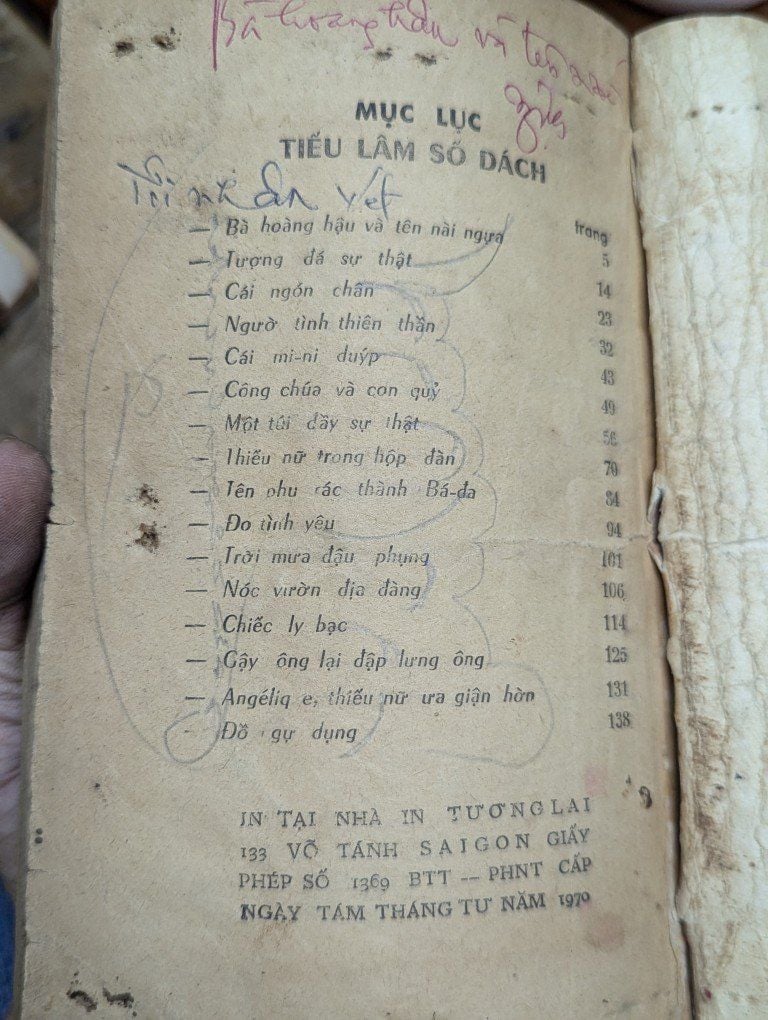 Bà hoàng hậu và tên nài
ngựa
MỤC LỤC
TIẾU LÂM SỐ DÁCH
nhân vẹt
trang
— Bà hoàng hậu và tên nài ngựa 5
— Tượng đá sự thật 14
— Cái ngón chân 23
— Người tình thiên thần 32
— Cái mi-ni duýp 43
— Công chúa và con quỷ 49
— Một túi đầy sự thật 56
— Thiếu nữ trong hộp đàn 70
— Tên phu rác thành Bá-đa 84
— Đo tình yêu 94
— Trời mưa đậu phụng 101
— Nóc vườn địa đàng 106
— Chiếc ly bạc 114
— Gậy ông lại đập lưng ông 125
— Angéliq e, thiếu nữ ưa giận hờn 131
Đồ gự dụng 138
IN TẠI NHÀ IN TƯƠNG LAI
133 VÕ TÁNH SAIGON GIẤY
PHÉP SỐ 1369 BTT -- PHNT CẤP
NGÀY TÁM THÁNG TƯ NĂM 1970